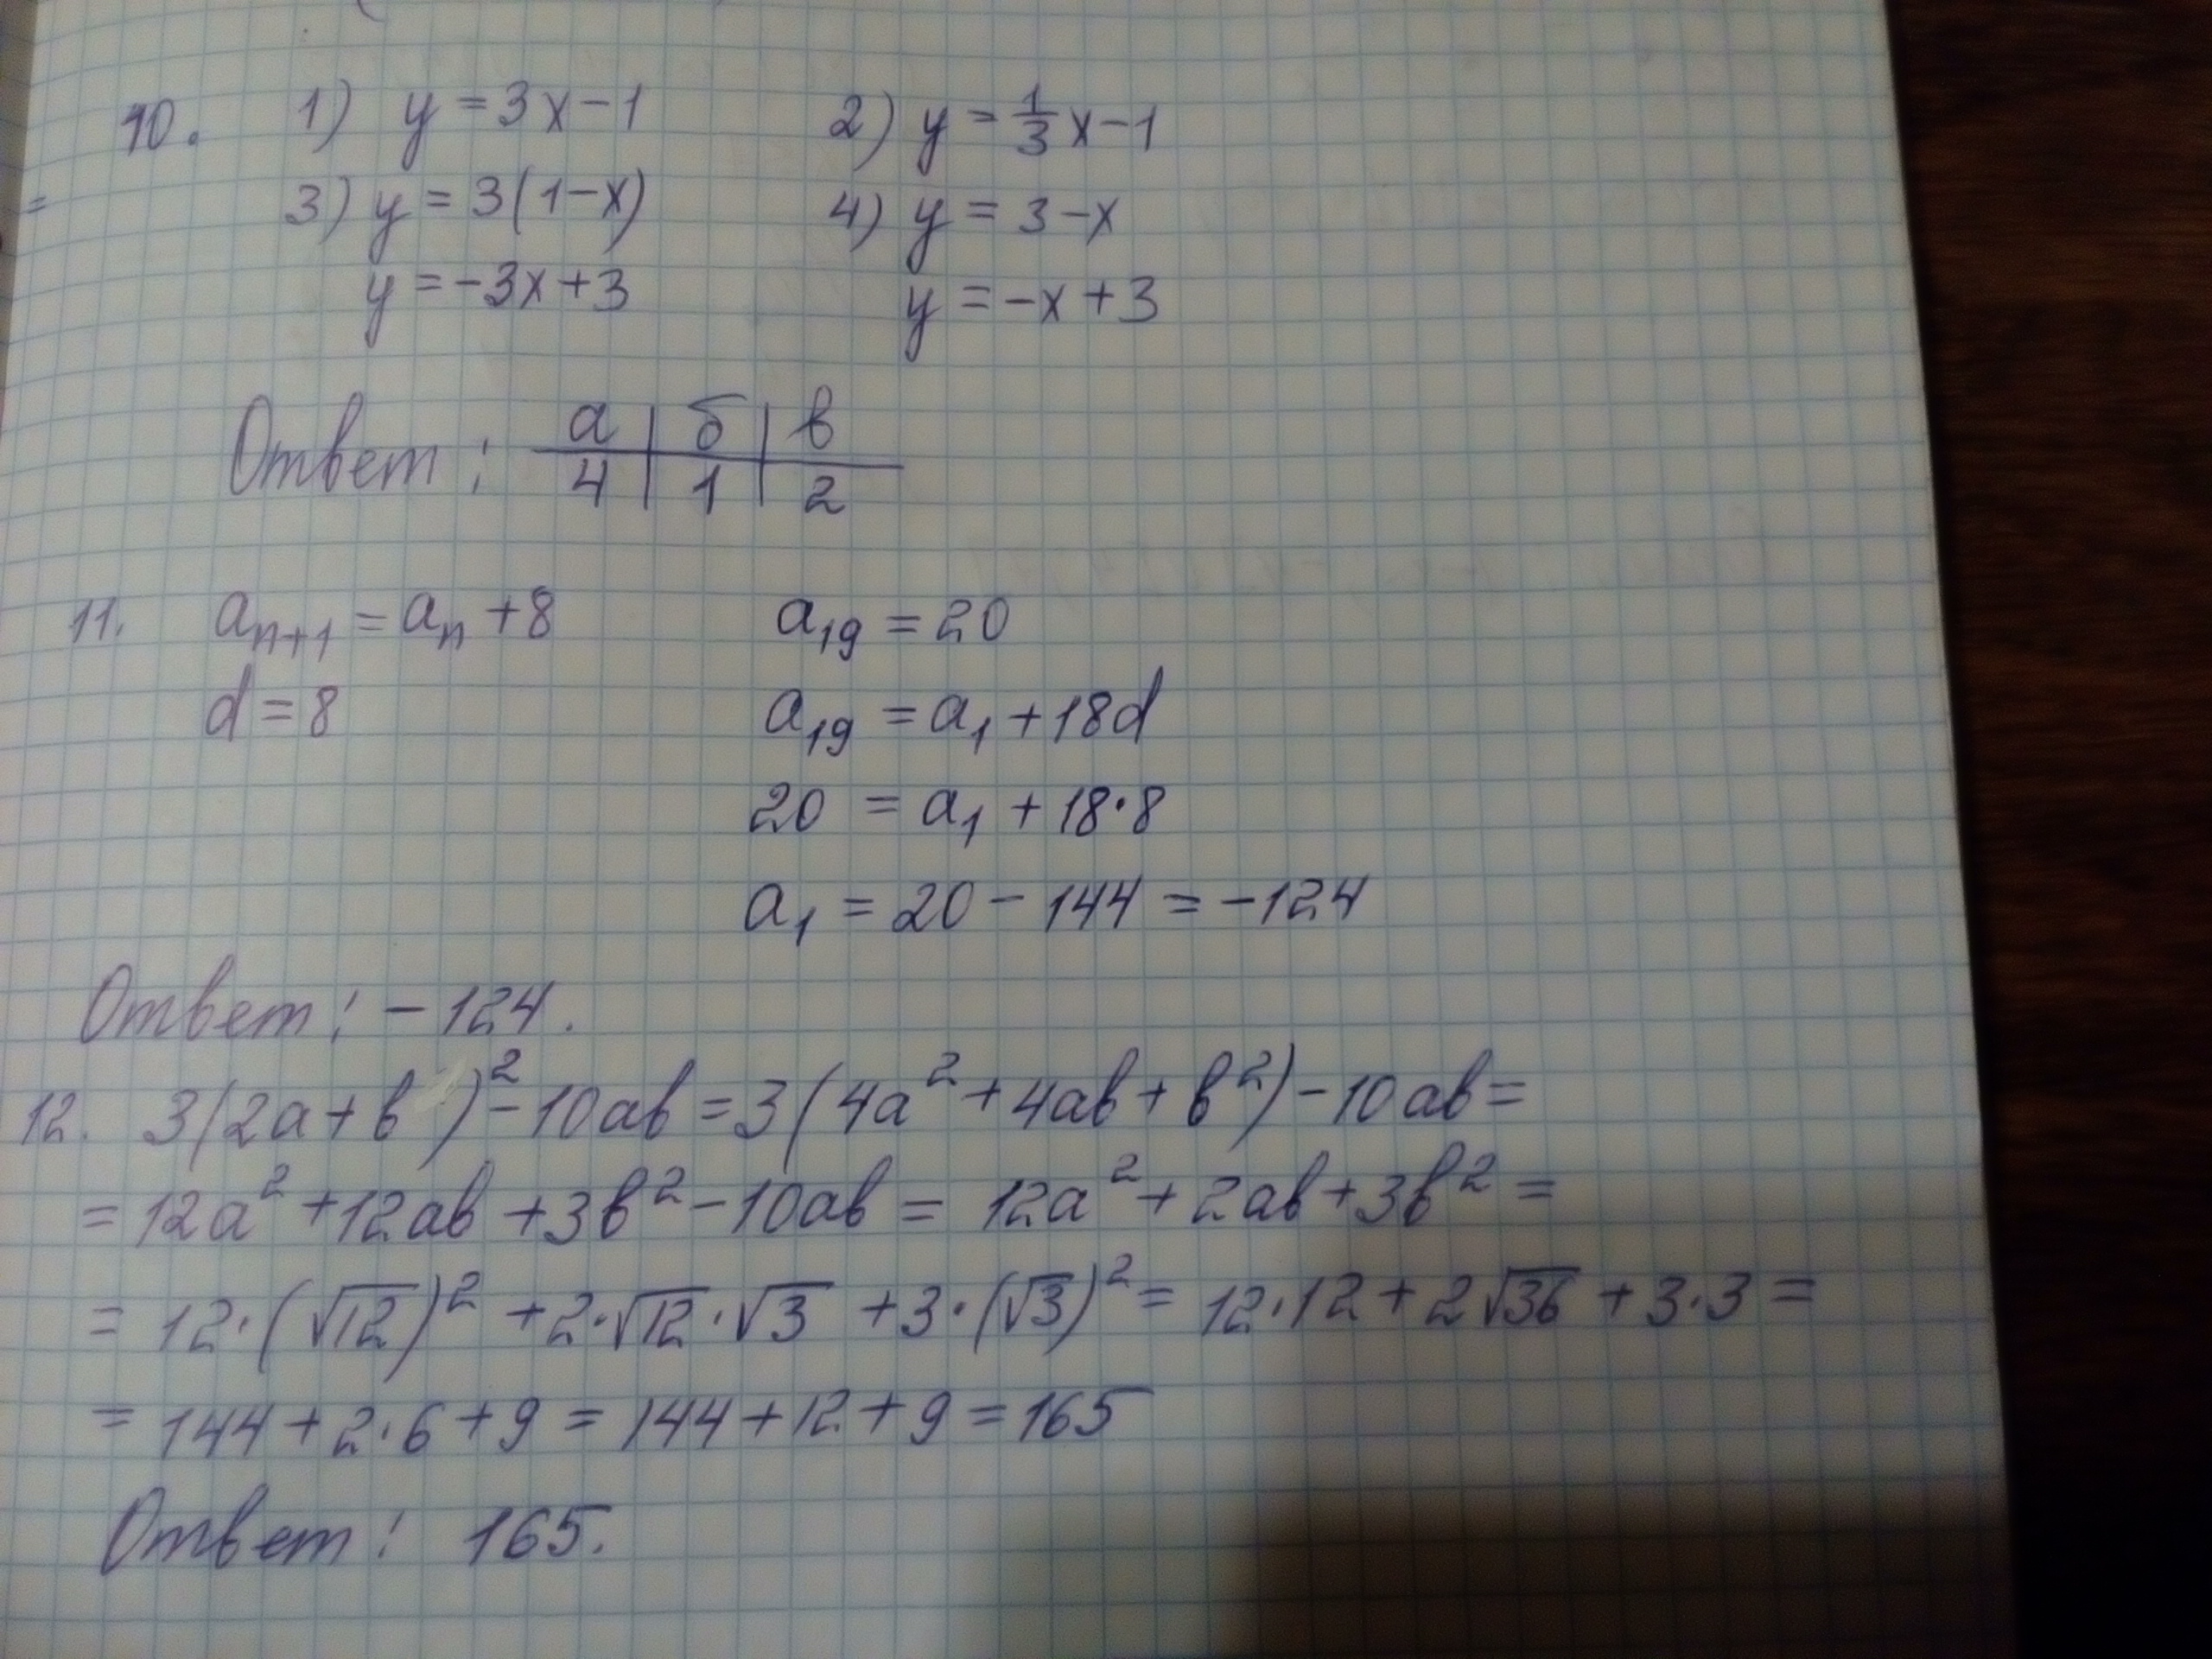 10. 1) y = 3x - 1 2) y = 1/3 x - 1
= 3) y = 3(1 - x) 4) y = 3 - x
y = -3x + 3 y = -x + 3
Ответ: а | б | в
4 | 1 | 2
11. aₙ₊₁ = aₙ + 8 a₁₉ = 20
d = 8 a₁₉ = a₁ + 18d
20 = a₁ + 18·8
a₁ = 20 - 144 = -124
Ответ: -124.
12. 3(2a + b)² - 10ab = 3(4a² + 4ab + b²) - 10ab =
= 12a² + 12ab + 3b² - 10ab = 12a² + 2ab + 3b² =
= 12·(√12)² + 2·√12·√3 + 3·(√3)² = 12·12 + 2√36 + 3·3 =
= 144 + 2·6 + 9 = 144 + 12 + 9 = 165
Ответ: 165.